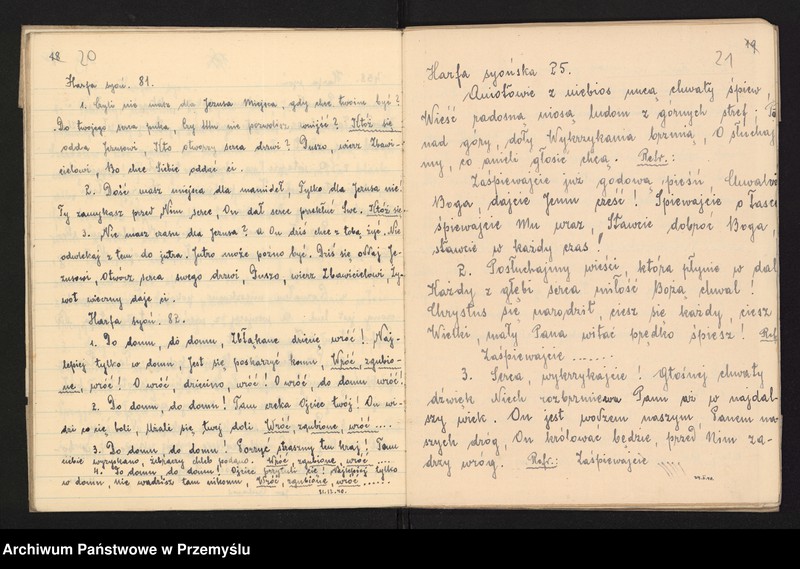 18 20
Harfa syoń. 81.
1. Czyli nie masz dla Jezusa Miejsca, gdy chce twoim być?
Do twojego serca puka, Czy Mu nie pozwolisz wnijść? Któż się
odda Jezusowi, Kto otworzy serca drzwi? Duszo, wierz Zbawi-
cielowi, Bo chce Siebie oddać ci.
2. Dość masz miejsca dla mamideł, Tylko dla Jezusa nie!
Ty zamykasz przed Nim serce, On dał serce przekłuć Swe. Któż się
3. Nie masz czasu dla Jezusa? a On dziś chce z tobą żyć. Nie
odwlekaj z tem do jutra. Jutro może pozno być. Dziś się oddaj Je-
zusowi, Otwórz serca swego drzwi, Duszo, wierz Zbawicielowi, Ży-
wot wieczny daje ci.
Harfa syoń. 82.
1. Do domu, do domu, Zbłąkane dziecię wróć! Naj-
lepiej tylko w domu, Jest się poskarżyć komu, Wróć, zgubio-
ne, wróć! O wróć, dziecino, wróć! O wróć, do domu wróć!
2. Do domu, do domu! Tam czeka Ojciec twój! On wi-
dzi co cię boli, Użali się twej doli Wróć, zgubione, wróć ....
3. Do domu, do domu! Porzuć straszny ten kraj! Tam
ciebie wyzyskano, żebraczy chleb podano. Wróć zgubione, wróć ....
4. Do domu, do domu! Ojciec przytuli cię! Najlepiej tylko
w domu, nie wadzisz tam nikomu, Wróć, zgubione, wróć ......
21.12.40.
19
21
Harfa syońska 25.
Aniołowie z niebios nucą chwały śpiew,
Wieść radosną niosą ludom z górnych stref;
nad góry, doły Wykrzykania brzmią, O słuchaj
my, co anieli głosić chcą. Refr.:
Zaśpiewajcie już godową pieśń, Chwalcie
Boga, dajcie Jemu cześć! Śpiewajcie o łasce
śpiewajcie Mu wraz, Sławcie dobroć Boga,
sławcie w każdy czas!
2. Posłuchajmy wieści, która płynie w dal
Każdy z głębi serca miłość Boża chwal!
Chrystus się narodził, ciesz się każdy, ciesz
Wielki, mały Pana witać prędko śpiesz! Ref.
Zaśpiewajcie .......
3. Serca, wykrzykajcie! Głośniej chwały
dźwięk Niech rozbrzmiewa Panu aż w najdal-
szy wiek. On jest wodzem naszym Panem na-
szych dróg On królować będzie, przed Nim za-
drży wróg. Refr.: Zaśpiewajcie
Archiwum Państwowe w Przemyślu